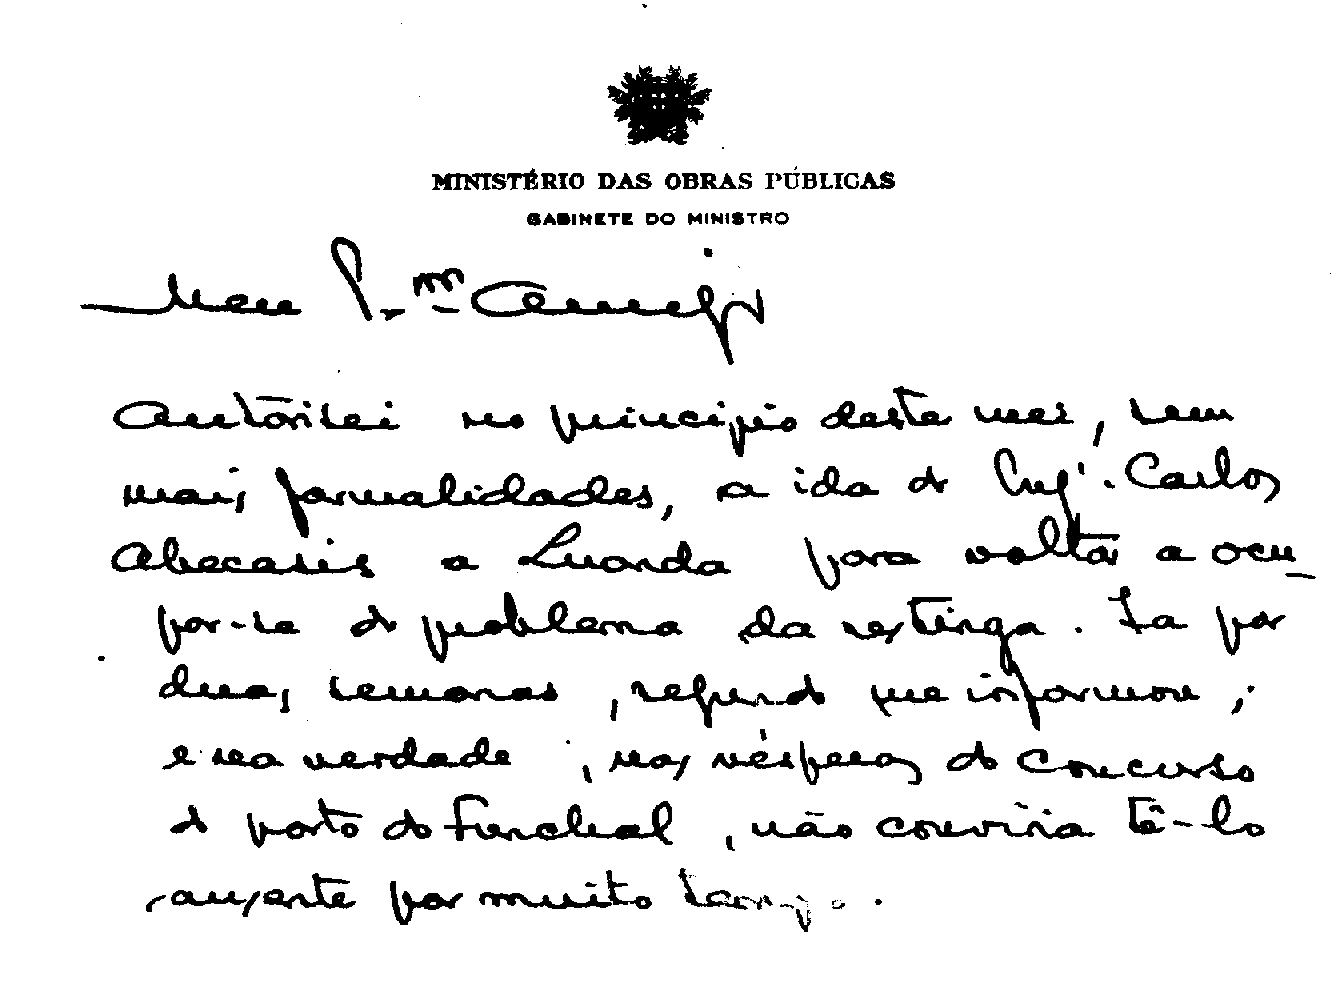 MINISTÉRIO DAS OBRAS PÚBLICAS
GABINETE DO MINISTRO
Meu Amigo
Autorisei no principio deste mez, sem
mais formalidades, a ida do Engº. Carlos
Abecasis a Luanda para voltar a ocu_
par-se do problema da restinga. Ia por
duas semanas, segundo me informou;
e na verdade, nas vésperas do concurso
do porto do Funchal, não conviria tê-lo
ausente por muito tempo.